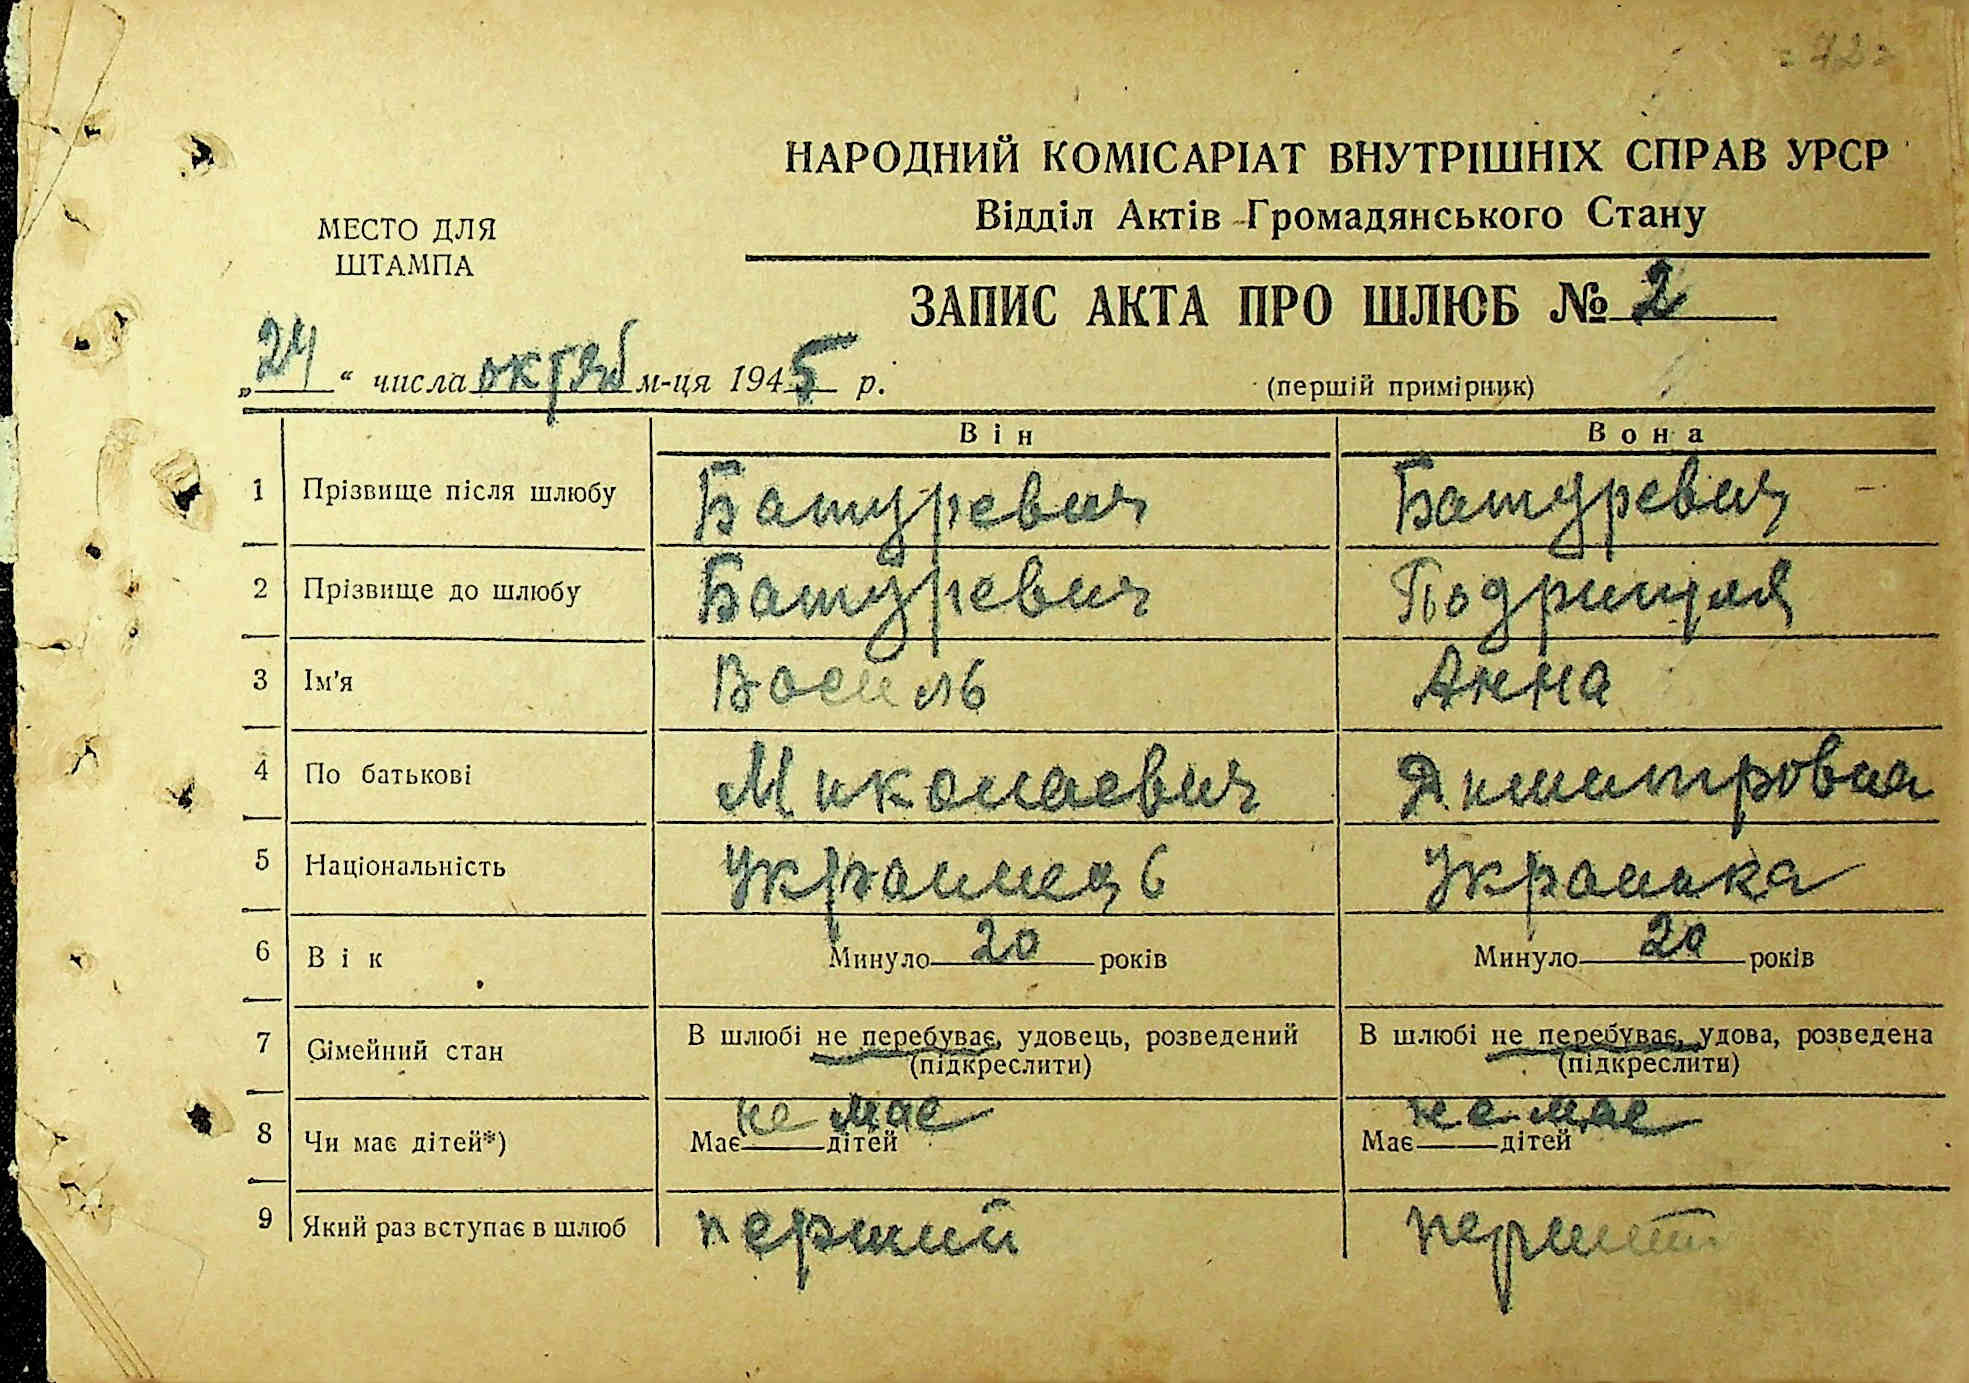 72
НАРОДНИЙ КОМІСАРІАТ ВНУТРІШНІХ СПРАВ УРСР
Відділ Актів Громадянського Стану
МЕСТО ДЛЯ
ШТАМПА
ЗАПИС АКТА ПРО ШЛЮБ № 2
„24“ числа октяб м-ця 1945 р.
(першій примірник)
Він Вона
1 Прізвище після шлюбу Батуревич Батуревич
2 Прізвище до шлюбу Батуревич
3 Ім'я Василь Анна
4 По батькові Миколаевич Димитровна
5 Національність Украинець Украинка
6 Вік Минуло 20 років Минуло 20 років
7 Сімейний стан В шлюбі не перебуває, удовець, розведений В шлюбі не перебуває, удова, розведена
(підкреслити) (підкреслити)
не має не має
8 Чи має дітей*) Має дітей Має дітей
9 Який раз вступає в шлюб перший перший